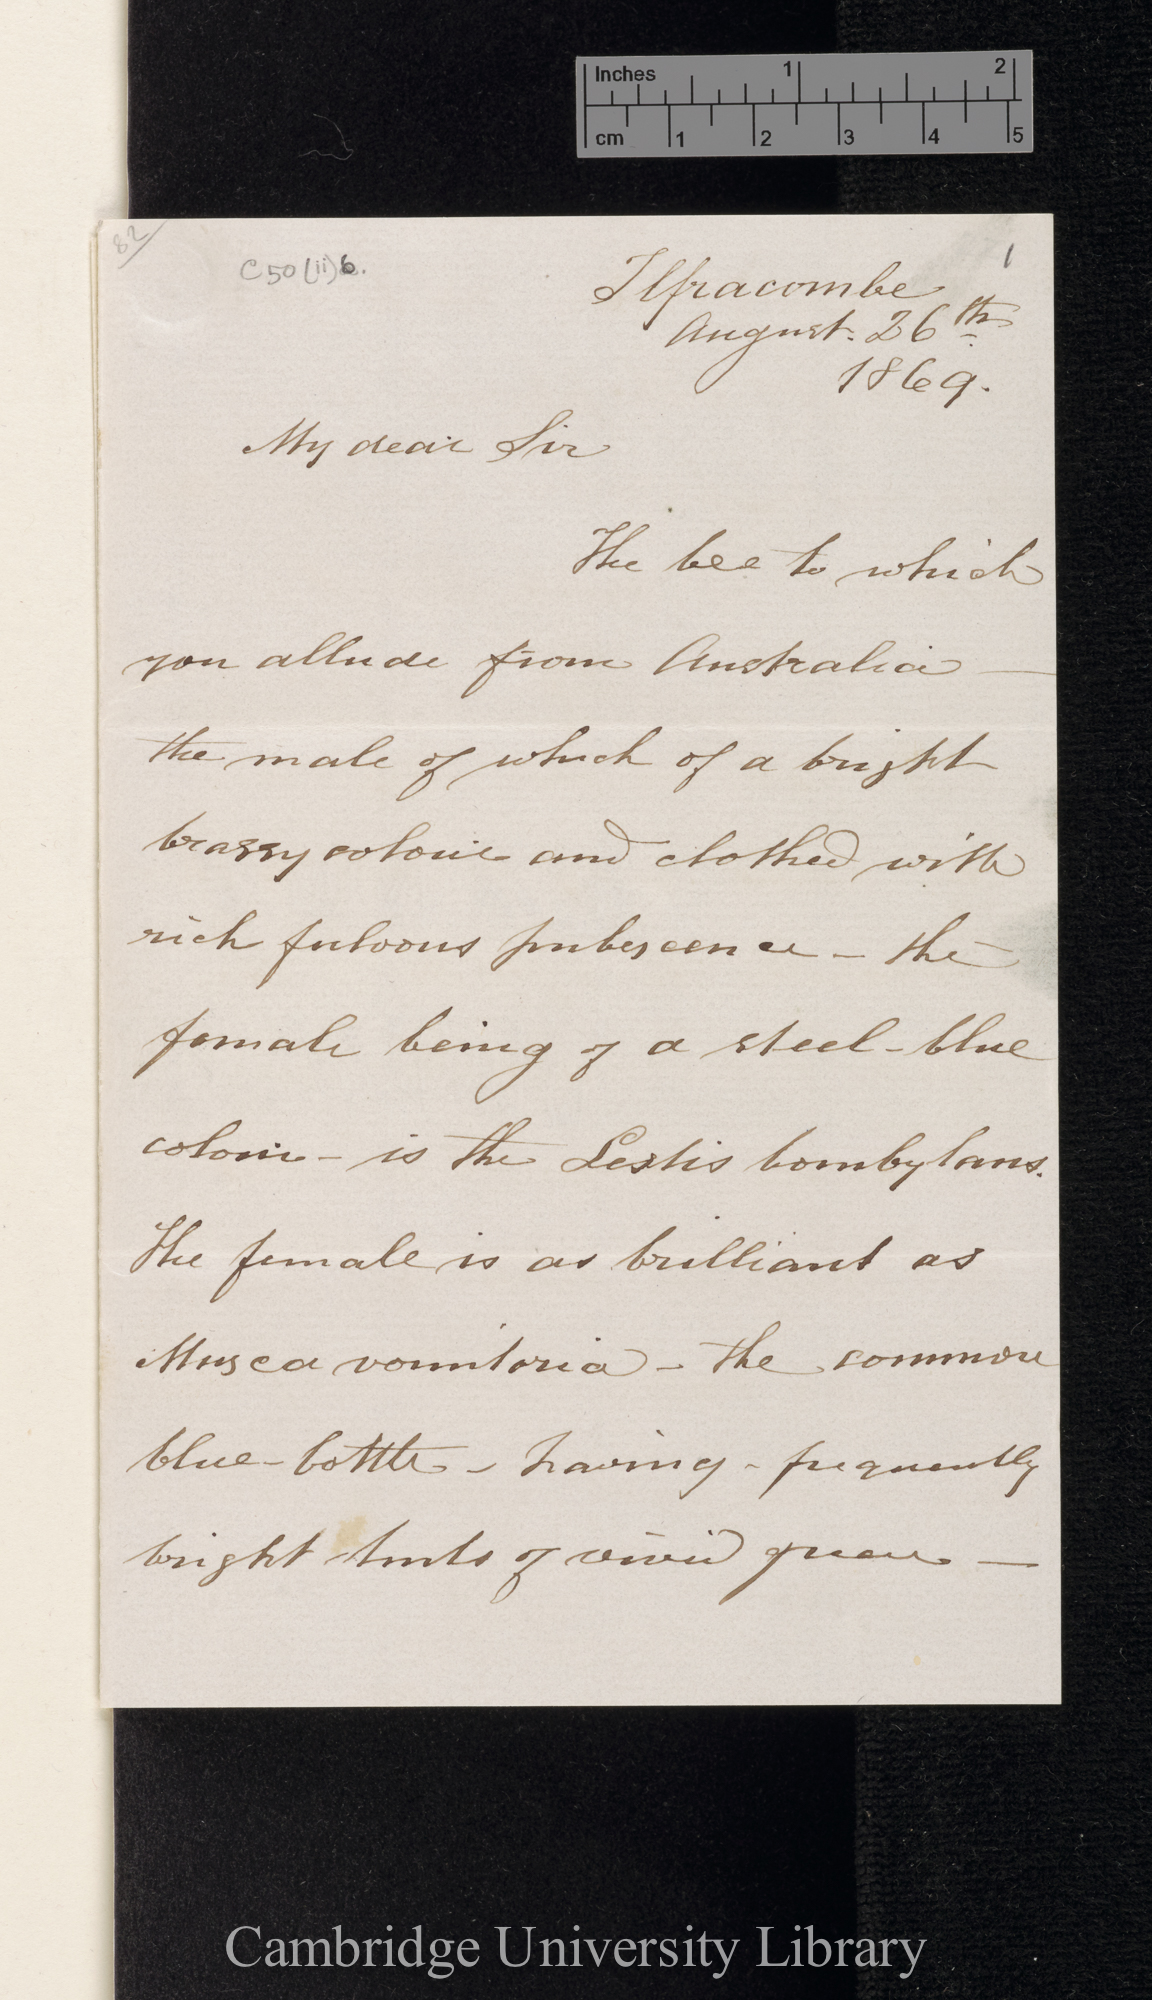 Inches 1 2
cm 1 2 3 4 5
82
C50(ii)6.
1
Ilfracombe
August. 26th
1869.
My dear Sir
The bee to which
you allude from Australia —
the male of which of a bright
brassy colour and clothed with
rich fulvous pubescence – the
female being of a steel-blue
colour – is the Lestis bombylans.
The female is as brilliant as
Musca vomitoria – the common
blue-bottle – having – frequently
bright tints of vivid green —
Cambridge University Library